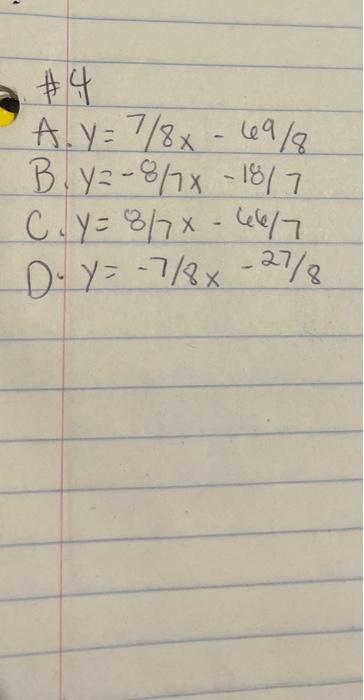 #4
A. y = 7/8x - 69/8
B. y = -8/7x - 18/7
C. y = 8/7x - 66/7
D. y = -7/8x - 27/8